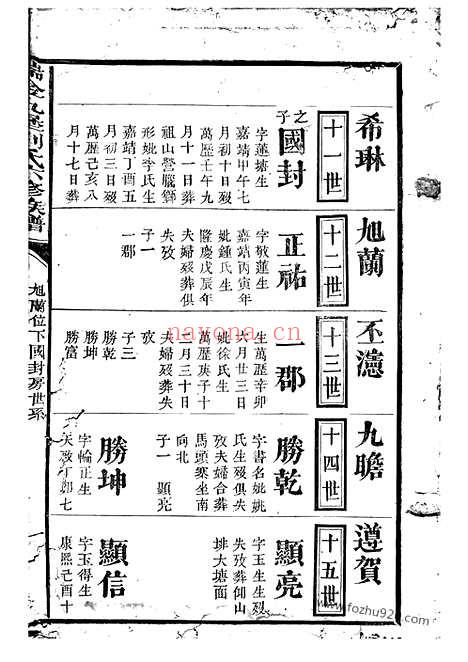 希琳
十一世
之子
國封
字蓮塘生
嘉靖甲午七
月初十日歿
萬歷壬午九
月十一日葬
祖山營臘獅
形妣李氏生
嘉靖丁酉五
月初三日歿
萬歷己亥八
月十七日葬
旭蘭
十二世
正祐
字敬蓮生
嘉靖丙寅年
妣鍾氏生
隆慶戊辰年
夫婦歿葬俱
失攷
子一
一郡
丕濾
十三世
一郡
生萬歷辛卯
六月廿三日
妣徐氏生
萬歷庚子十
一月三十日
夫婦歿葬失
攷
子三
勝乾
勝坤
勝富
九瞻
十四世
勝乾
字書名妣姚
氏生歿俱失
攷夫婦合葬
馬頭寨坐南
向北
子一 顯亮
勝坤
字輪正生
天啟丁卯七
遵賀
十五世
顯亮
字玉生生歿
失攷葬仰山
排大塘面
顯信
字玉得生
康熙己酉十
瑞金九差劉氏六修族譜
旭蘭位下國封房世系
nayona.cn
www.fozhu920.com